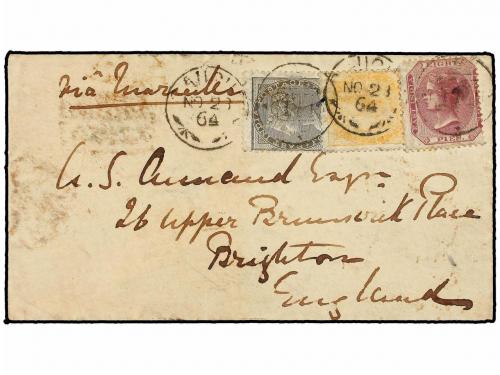 via Marseilles
NO 23
64
NO 23
64
PIES
A. S. Armand Esqre
26 Upper Brunswick Place
Brighton
England